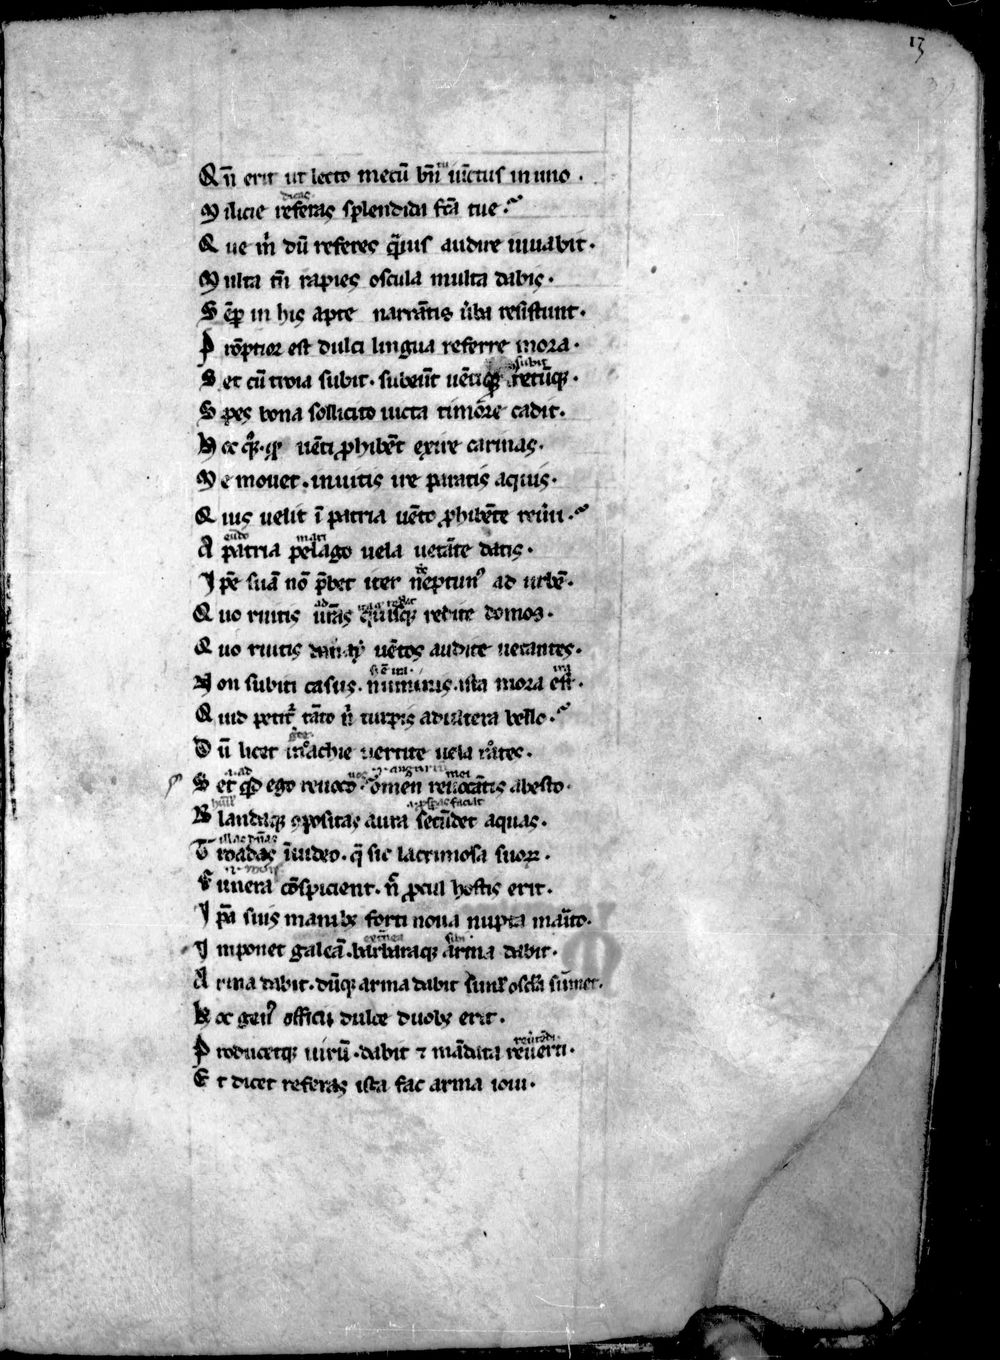 13
Qn̄ erit ut lecto mecū bn̄ iūctus in uno .
tu
dicas
Milicie referas splendida fc̄a tue .
Que m̍ dū referes q̄ᵐius audire iuuabit .
Multa tn̄ rapies oscula multa dabis .
Sēp̄ in his apte narrātis u̍ba resistunt .
Prōptior est dulci lingua referre mora .
subit
Set cū troia subit . subeūt uētiqꝫ fretūqꝫ .
Spes bona sollicito uicta timore cadit .
Hoc qᵒꝫ . qᵈ uēti ꝓhibēt exire carinas .
Me mouet . inuitis ire paratis aquis .
Quis uelit ī patria uēto ꝓhibēte reu̍ti .
A patria pelago uela uetāte datis .
mari
Ip̄e suā nō p̄bet iter neptunꝰ ad urbē .
Quo ruitis ur̄as quisqꝫ redite domos .
ad
Quo ruitis danai uētos audite uetantes .
Non subiti casus . numinis ista mora est .
Quid petit̉ tāto n̍ turpis adultera bello .
Dū licet inachie uertite uela rates .
Set qᵈ ego reuoco . omen reuocātis abesto .
Blandaqꝫ ꝯpositas aura secūdet aquas .
Troadas īuideo . q̄ sic lacrimosa suoꝝ .
Funera cōspicient . n̄ ꝓcul hostis erit .
Ip̄a suis manibꝫ forti noua nupta marito .
Inponet galeā . barbaraqꝫ arma dabit .
sibi
Arma dabit . dūqꝫ arma dabit simł oscła sumet .
Hoc genꝰ officii dulce duobꝫ erit .
Producetqꝫ uirū . dabit ⁊ mādata reuerti .
Et dicet referas ista fac arma ioui .